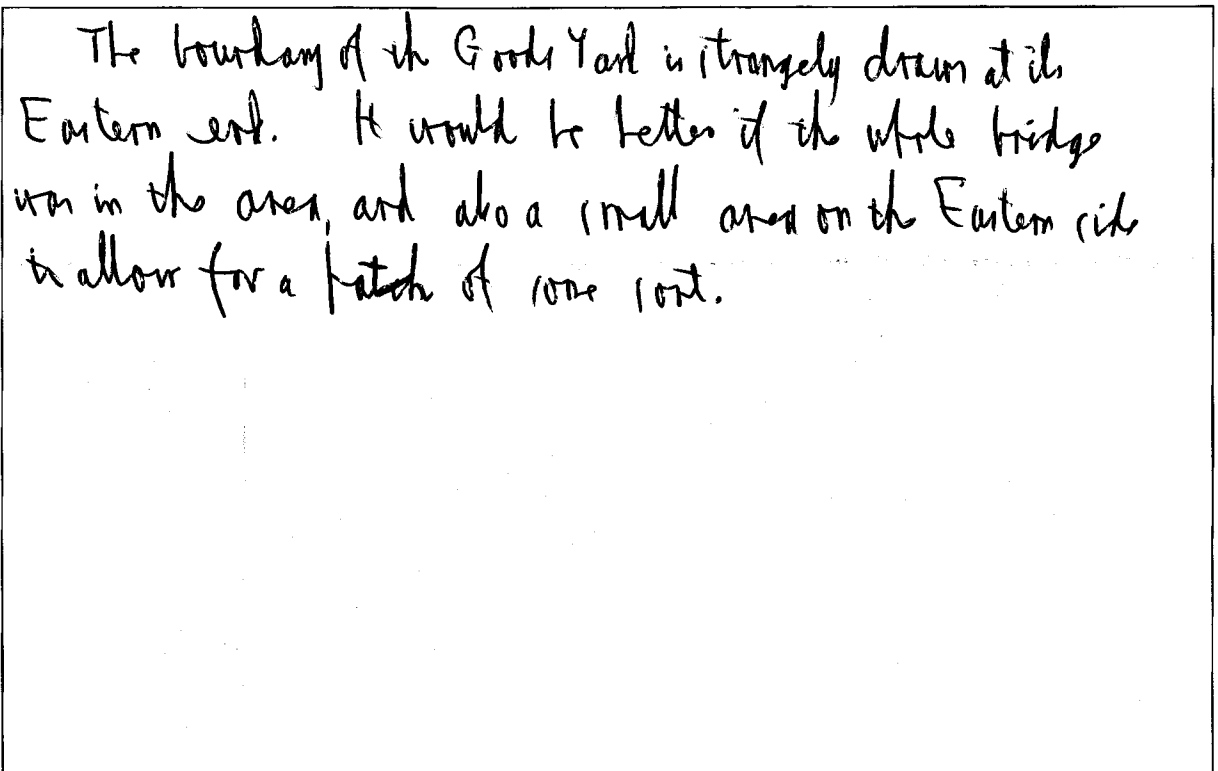 The boundary of the Goods Yard is strangely drawn at its
Eastern end. It would be better if the whole bridge
was in the area, and also a small area on the Eastern side
to allow for a patch of some sort.